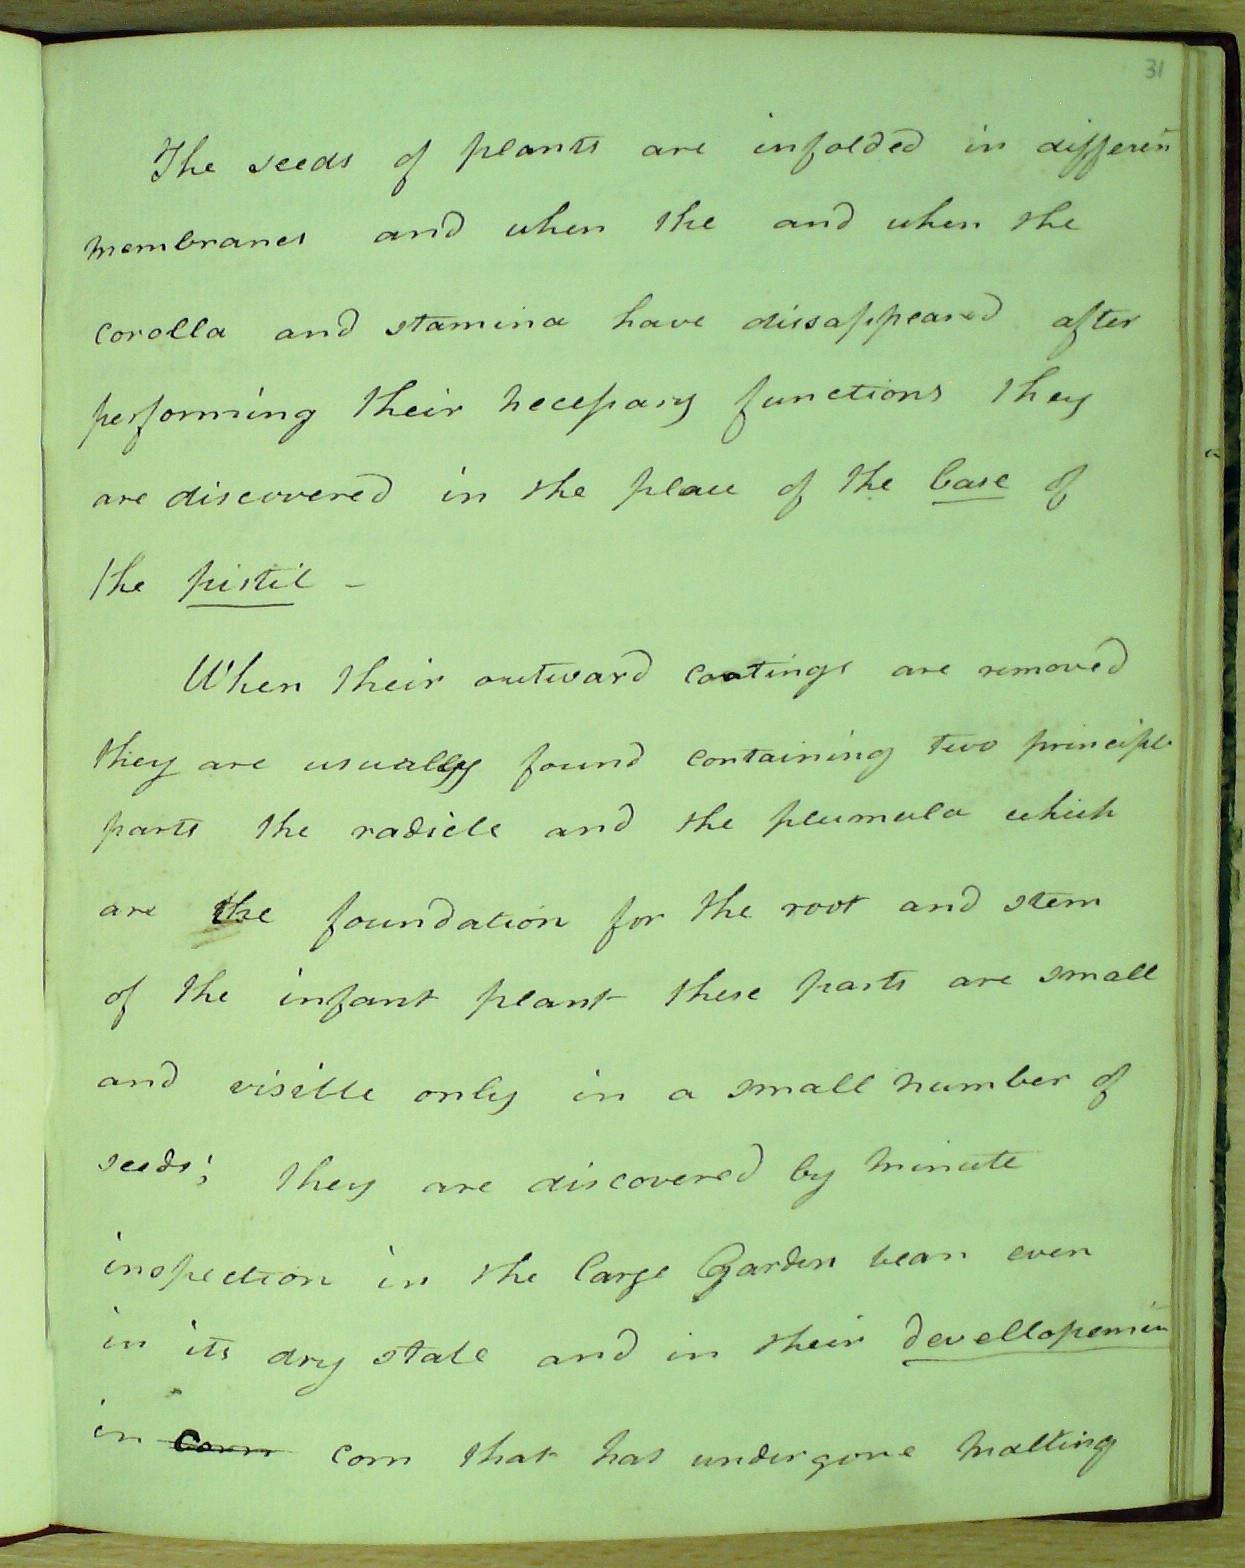 31
The seeds of plants are infolded in differen
membranes and when the and when the
corolla and stamina have dissappeared after
performing their necessary functions they
are discovered in the place of the base of
the pistil -
When their outward coatings are removed
they are usually found containing two principle
parts the radicle and the plumula which
are the foundation for the root and stem
of the infant plant these parts are small
and visible only in a small number of
seeds; they are discovered by minute
inspection in the large Garden bean even
in its dry state and in their devellopemen
in corn corn that has undergone malting